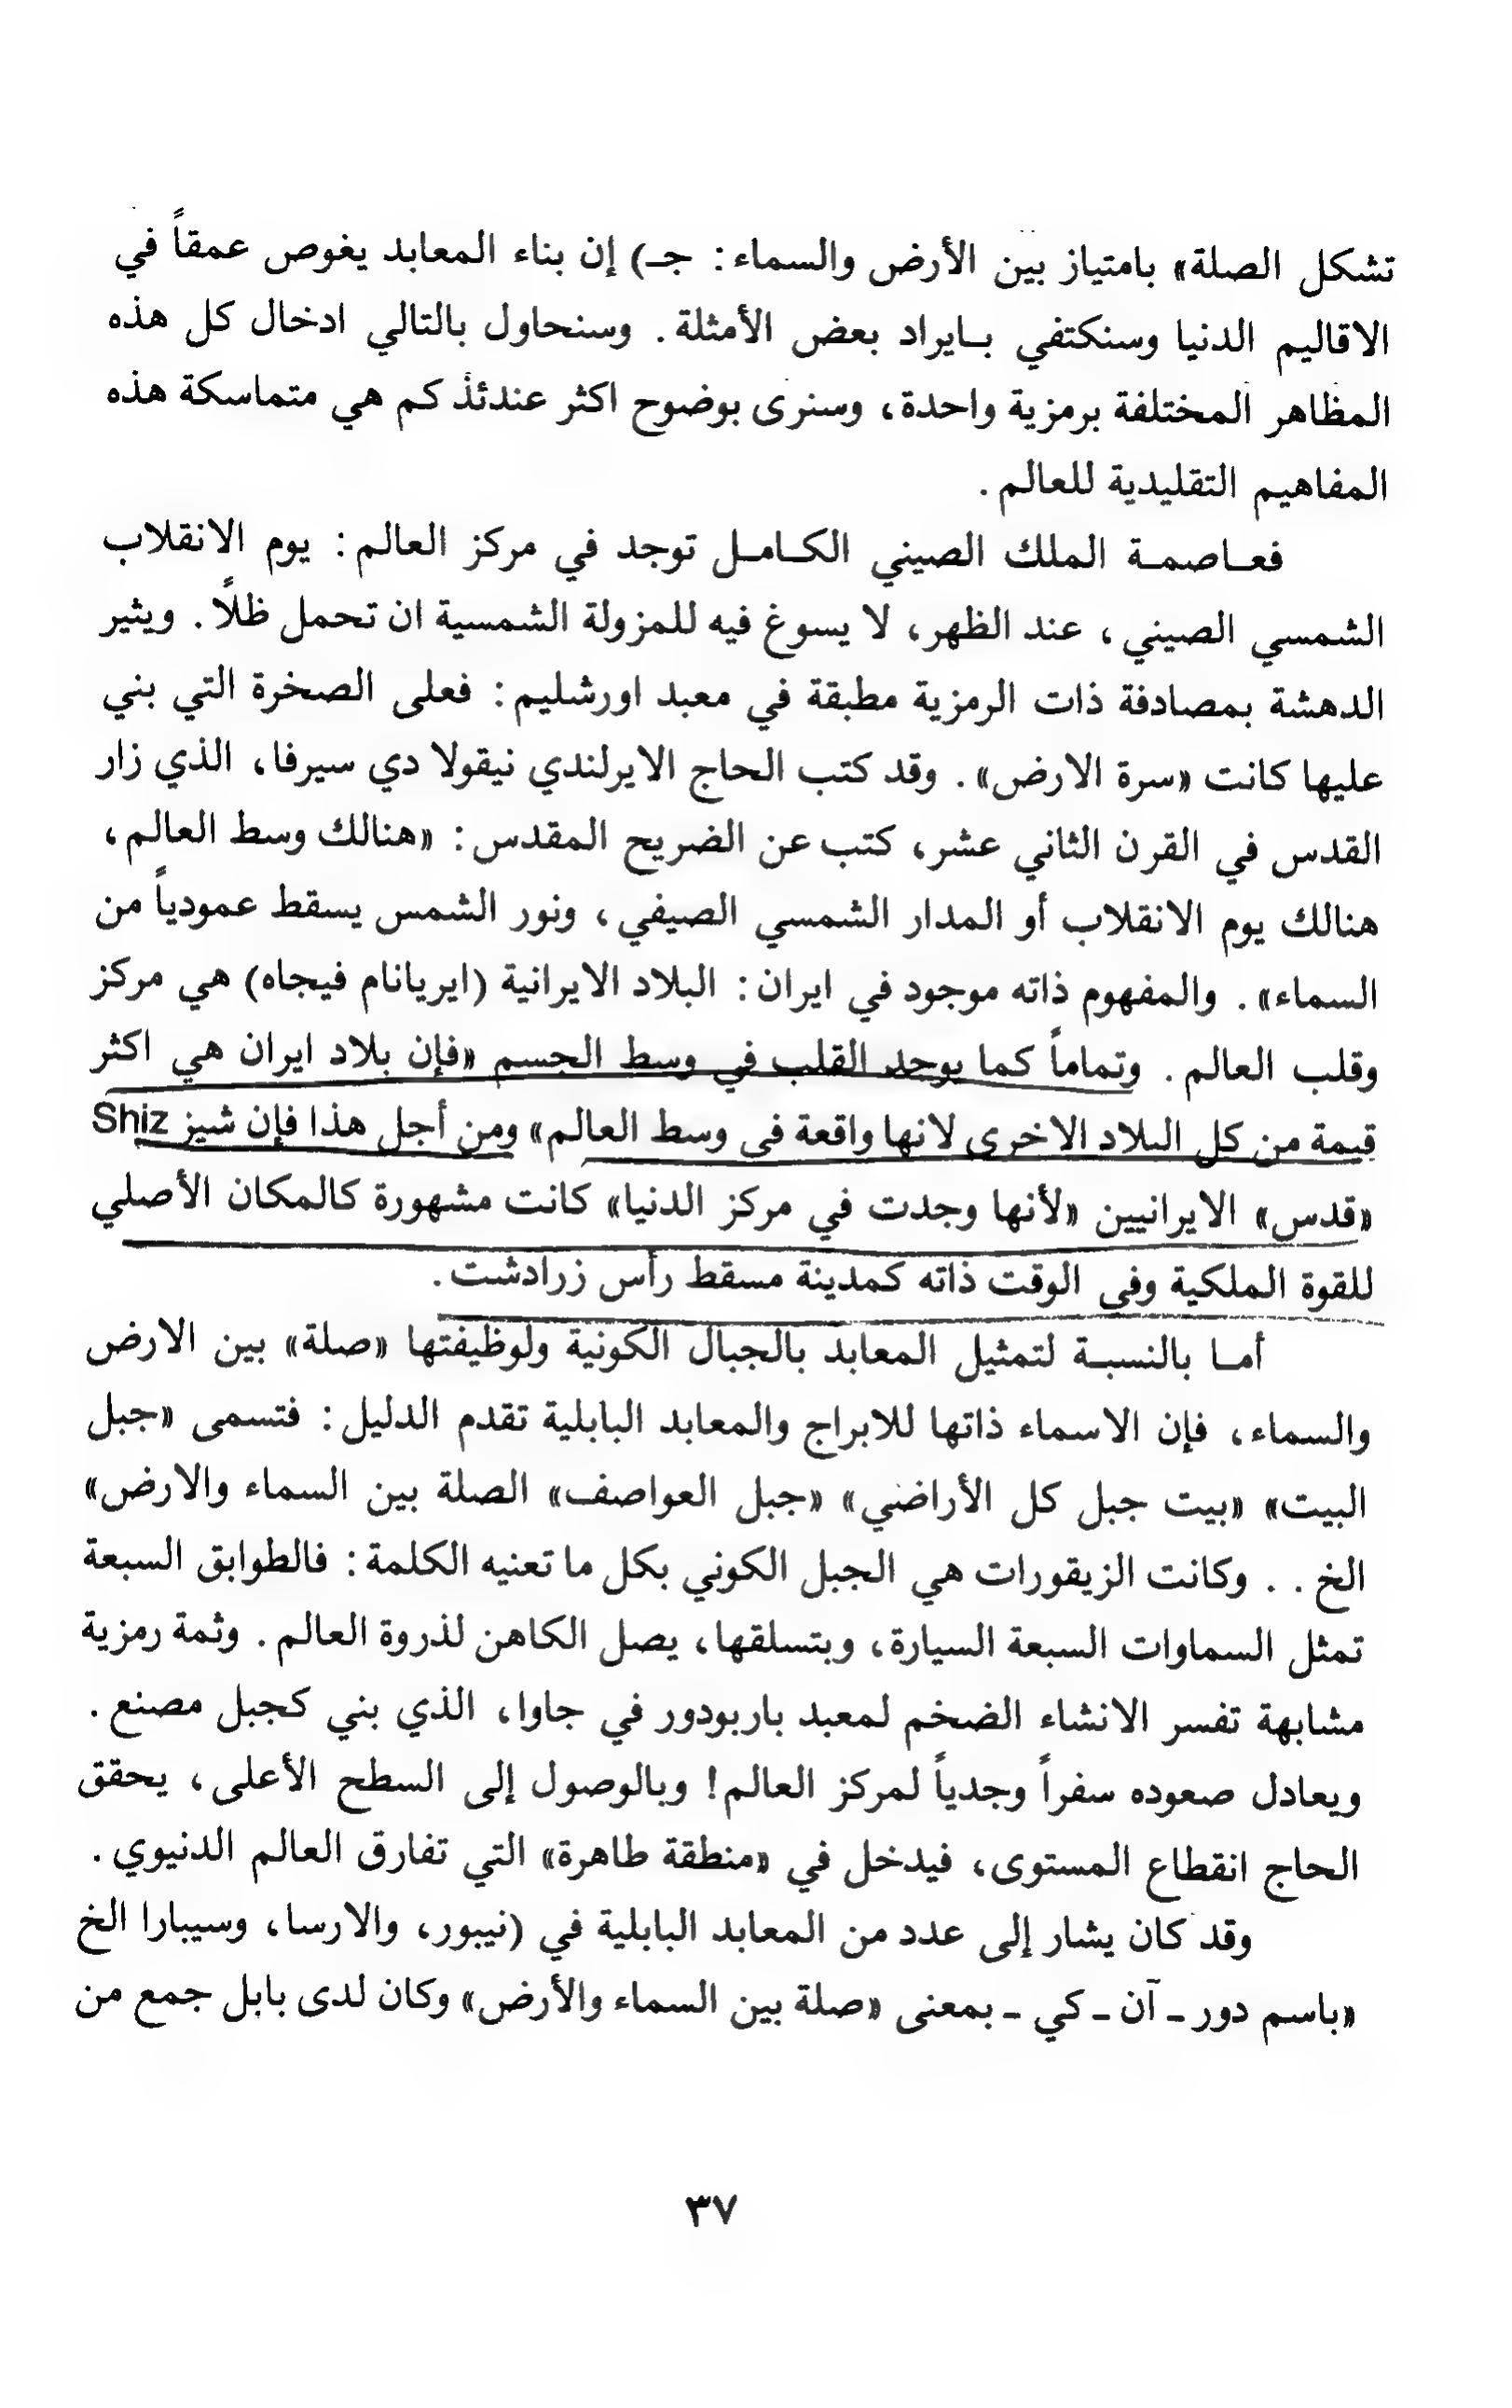 تشكل الصلة» بامتياز بين الأرض والسماء: جـ) إن بناء المعابد يغوص عمقاً في
الاقاليم الدنيا وسنكتفي بـايراد بعض الأمثلة. وسنحاول بالتالي ادخال كل هذه
المظاهر المختلفة برمزية واحدة، وسنرى بوضوح اكثر عندئذ كم هي متماسكة هذه
المفاهيم التقليدية للعالم.
فعـاصمـة الملك الصيني الكـامـل توجد في مركز العالم: يوم الانقلاب
الشمسي الصيني، عند الظهر، لا يسوغ فيه للمزولة الشمسية ان تحمل ظلاً. ويثير
الدهشة بمصادفة ذات الرمزية مطبقة في معبد اورشليم: فعلى الصخرة التي بني
عليها كانت «سرة الارض». وقد كتب الحاج الايرلندي نيقولا دي سيرفا، الذي زار
القدس في القرن الثاني عشر، كتب عن الضريح المقدس: «هنالك وسط العالم،
هنالك يوم الانقلاب أو المدار الشمسي الصيفي، ونور الشمس يسقط عمودياً من
السماء». والمفهوم ذاته موجود في ايران: البلاد الايرانية (ايريانام فيجاه) هي مركز
وقلب العالم. وتماماً كما يوجد القلب في وسط الجسم «فإن بلاد ايران هي اكثر
قيمة من كل البلاد الاخرى لانها واقعة في وسط العالم» ومن أجل هذا فإن شيز Shiz
«قدس» الايرانيين «لأنها وجدت في مركز الدنيا» كانت مشهورة كالمكان الأصلي
للقوة الملكية وفي الوقت ذاته كمدينة مسقط رأس زرادشت.
أمـا بالنسبـة لتمثيل المعابد بالجبال الكونية ولوظيفتها «صلة» بين الارض
والسماء، فإن الاسماء ذاتها للابراج والمعابد البابلية تقدم الدليل: فتسمى «جبل
البيت» «بيت جبل كل الأراضي» «جبل العواصف» الصلة بين السماء والارض»
الخ . . وكانت الزيقورات هي الجبل الكوني بكل ما تعنيه الكلمة: فالطوابق السبعة
تمثل السماوات السبعة السيارة، وبتسلقها، يصل الكاهن لذروة العالم. وثمة رمزية
مشابهة تفسر الانشاء الضخم لمعبد باربودور في جاوا، الذي بني كجبل مصنع.
ويعادل صعوده سفراً وجدياً لمركز العالم! وبالوصول إلى السطح الأعلى، يحقق
الحاج انقطاع المستوى، فيدخل في «منطقة طاهرة» التي تفارق العالم الدنيوي.
وقد كان يشار إلى عدد من المعابد البابلية في (نيبور، والارسا، وسيبارا الخ
«باسم دور ـ آن ـ كي ـ بمعنى «صلة بين السماء والأرض» وكان لدى بابل جمع من
٣٧